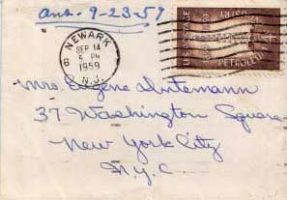 Ans. 9-23-59
NEWARK
8
SEP 14
5 PM
1959
N.J.
PETROLEUM
Mrs. Eugene
37 Washington Square
New York City
N.Y.C.